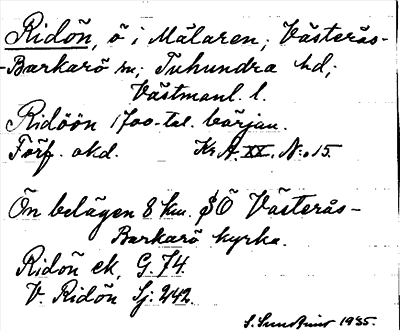 Ridön, ö i Mälaren; Västerås-
-Barkarö sn; Tuhundra hd;
Västmanl. l.
Ridöön 1700-tal. början.
Förf. okd. Kr.A. XX. N:o 15.
Ön belägen 8 km. SÖ Västerås-
Barkarö kyrka.
Ridön ek, G. 74.
V. Ridön Sj: 242.
1935